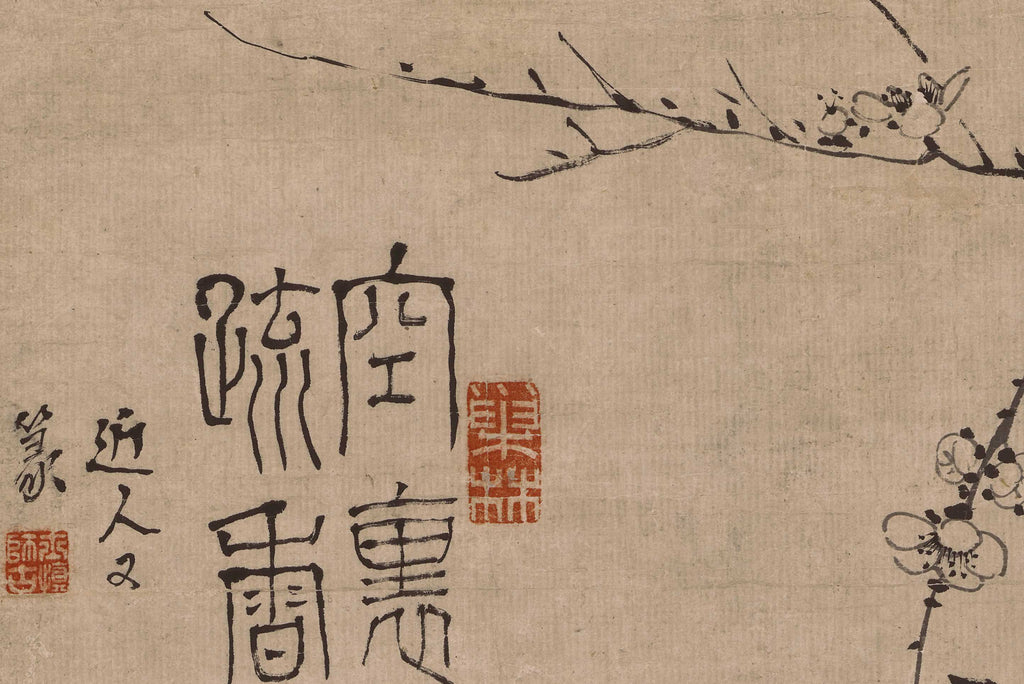 空裏
疏香
近人又
篆